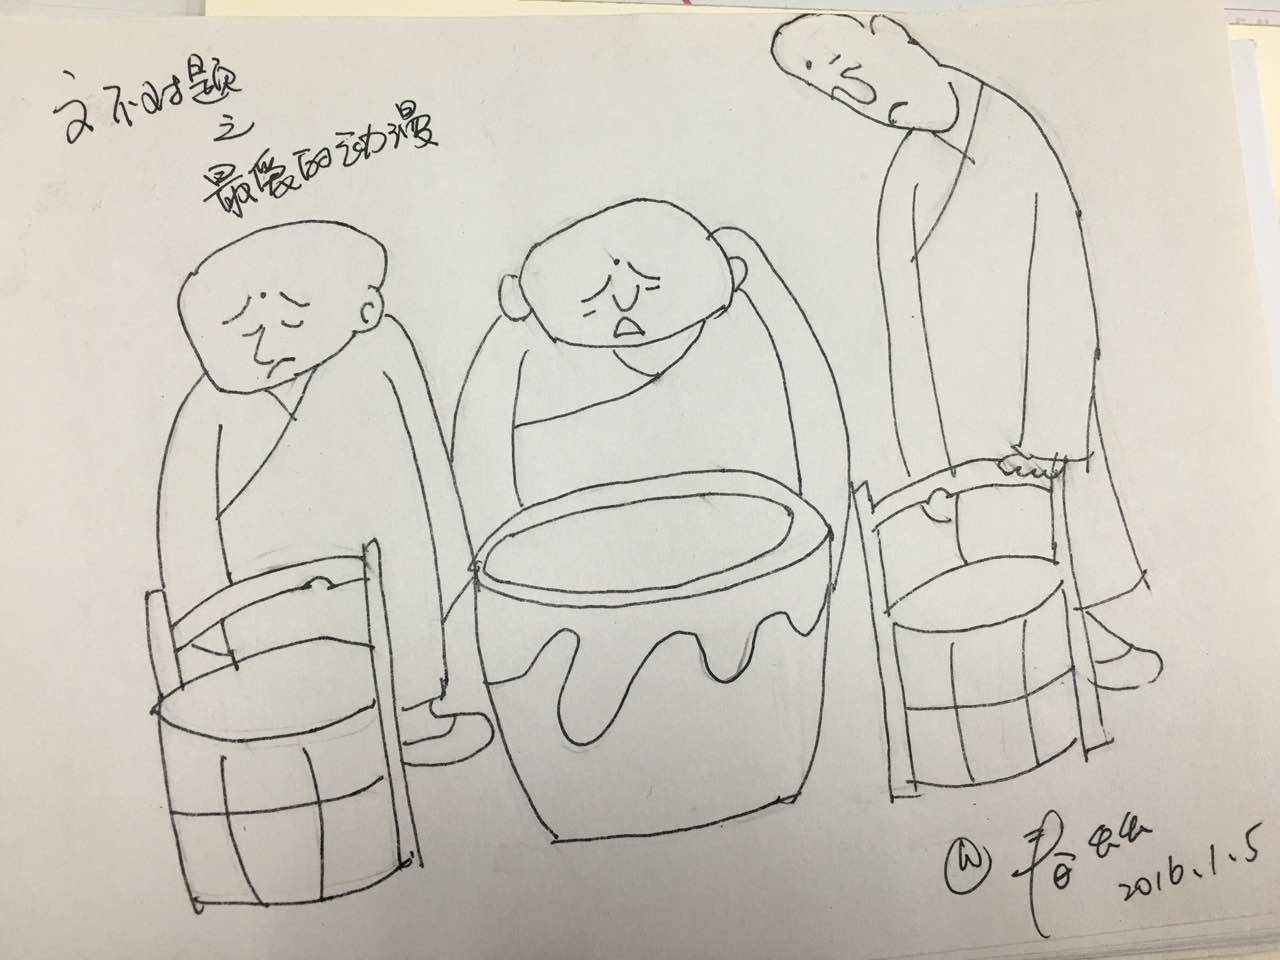 文不对题
之
最爱的动漫
2016.1.5